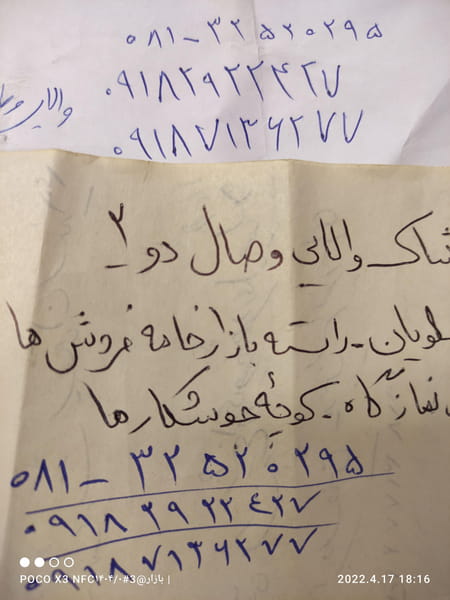 ۰۸۱ - ۳۲۵۲۰۲۹۵
۰۹۱۸۲۹۲۲۴۲۷
۰۹۱۸۷۱۳۶۲۷۷
والایی
والایی وصال دو ۲
راسته بازار خامه فروش ها
نماز گاه - کوچهٔ جوشکار ها
۰۸۱ - ۳۲۵۲۰۲۹۵
۰۹۱۸۲۹۲۲۴۲۷
۰۹۱۸۷۱۳۶۲۷۷
POCO X3 NFC۱۴۰۲/۰#3@بازار |
2022.4.17 18:16